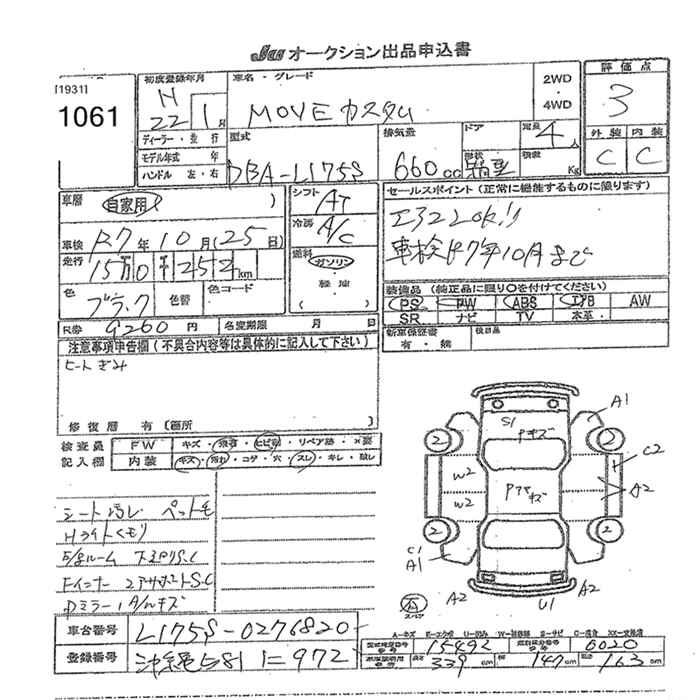 JU オークション出品申込書
[1931]
1061
初度登録年月
H 22 1月
ディーラー・並行
モデル年式 年
ハンドル 左・右
車名・グレード
MOVE カスタム
2WD
・
4WD
型式
DBA-L175S
排気量
660cc
ドア
形状
箱型
定員
4人
積載
Kg
評価点
3
外装 内装
C C
車歴 自家用 ( )
車検 R7年10月(25日)
走行 15万0千252km
色 ブラック 色替 色コード
R券 9260円 名変期限 月 日
シフト AT
冷房 A/C
燃料
ガソリン
・
軽油
( )
セールスポイント(正常に機能するものに限ります)
車検R7年10月まで
装備品(純正品に限り○を付けてください)
PS PW ABS エアB AW
SR ナビ TV 本革
新車保証書
有・無
検目品
注意事項申告欄(不具合内容等は具体的に記入して下さい)
修復歴 有(箇所 )
検査員
記入欄
FW キズ・飛石・ヒビ割・リペア跡・×要
内装 キズ・汚れ・コゲ・穴・スレ・キレ・欠し
シート汚レ ペット毛
Hライトくもり
Dミラー1 A/ハンキズ
A1
S1
Pキズ
2
2
W2
W2
Pアセキズ
C2
A2
2
2
C1
A1
A2
U1
A2
スペア
A-キズ E-エクボ U-凹み W-補修跡 S-サビ C-腐食 XX-交換済
車台番号 L175S-0276820
登録番号 沖縄581 に972
型式指定番号 15492 類別区分番号 0020
車庫証明用 長さ 339cm 幅 147cm 高さ 163cm